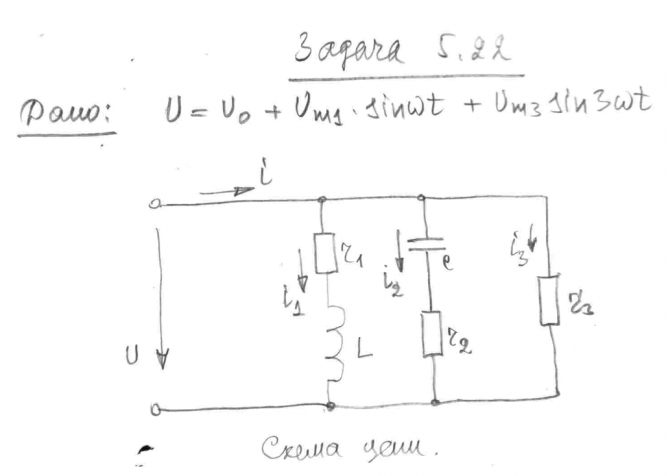 Задача 5.22
Дано: U = U₀ + Um1 · sinωt + Um3 sin3ωt
i
r1
i1
L
i2
c
r2
i3
r3
U
Схема цепи.